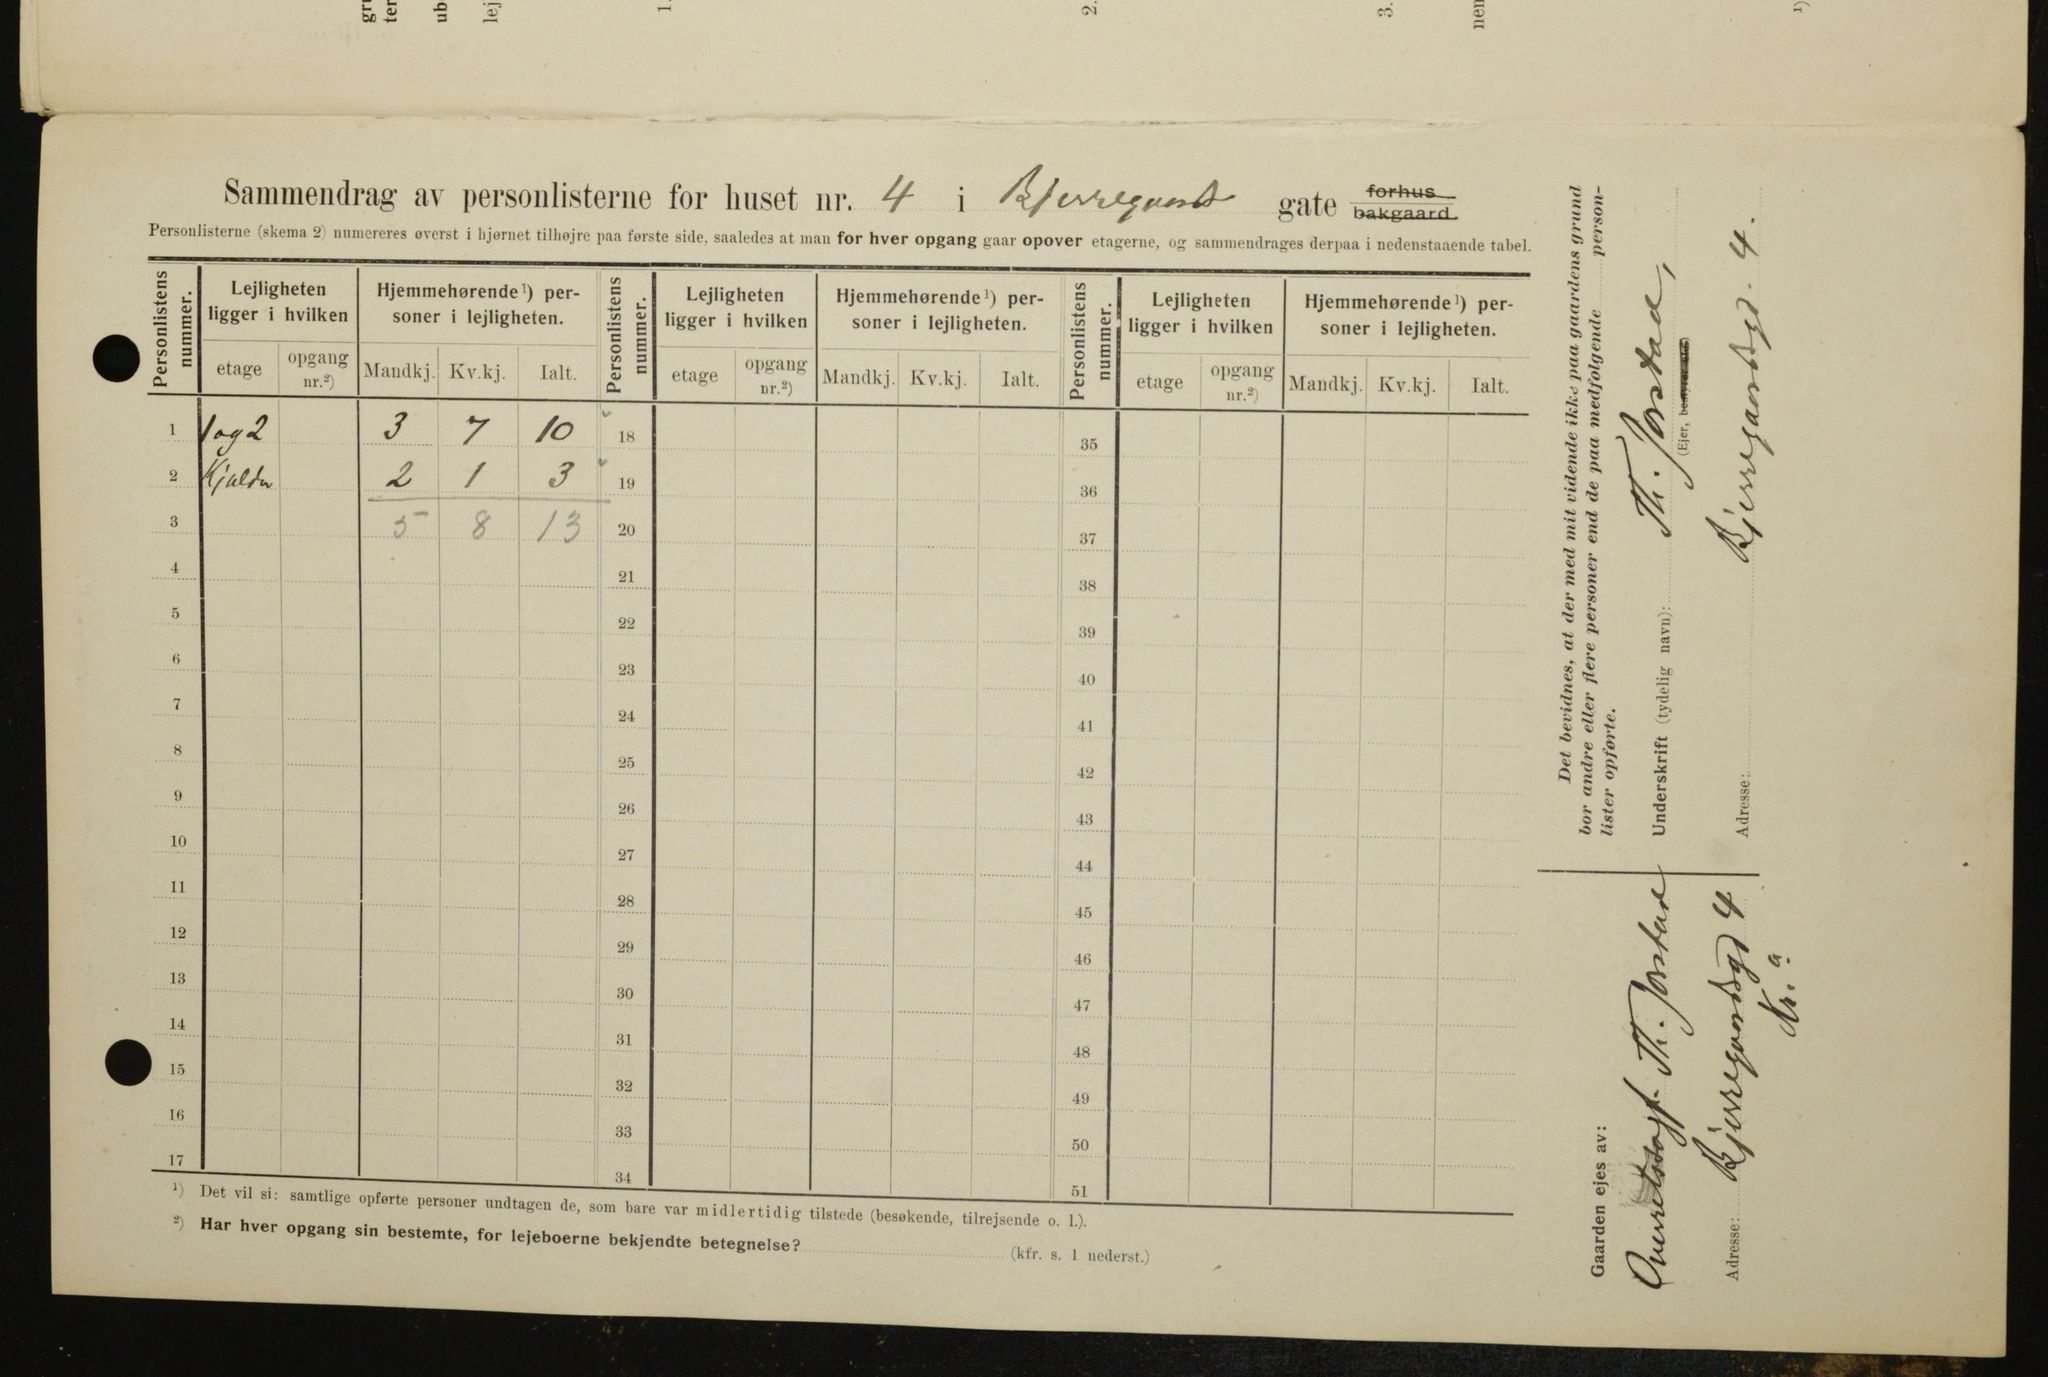 Sammendrag av personlisterne for huset nr. 4 i Bjerregaards gate forhus bakgaard.
Personlisterne (skema 2) numereres øverst i hjørnet tilhøjre paa første side, saaledes at man for hver opgang gaar opover etagerne, og sammendrages derpaa i nedenstaaende tabel.
Personlistens nummer. Lejligheten ligger i hvilken Hjemmehørende¹) personer i lejligheten. Personlistens nummer. Lejligheten ligger i hvilken Hjemmehørende¹) personer i lejligheten. Personlistens nummer. Lejligheten ligger i hvilken Hjemmehørende¹) personer i lejligheten.
etage opgang nr.²) Mandkj. Kv.kj. Ialt. etage opgang nr.²) Mandkj. Kv.kj. Ialt. etage opgang nr.²) Mandkj. Kv.kj. Ialt.
1 1 og 2 3 7 10 18 35
2 Kjelder 2 1 3 19 36
3 5 8 13 20 37
4 21 38
5 22 39
6 23 40
7 24 41
8 25 42
9 26 43
10 27 44
11 28 45
12 29 46
13 30 47
14 31 48
15 32 49
16 33 50
17 34 51
¹) Det vil si: samtlige opførte personer undtagen de, som bare var midlertidig tilstede (besøkende, tilrejsende o. l.).
²) Har hver opgang sin bestemte, for lejeboerne bekjendte betegnelse? (kfr. s. 1 nederst.)
Det bevidnes, at der med mit vidende ikke paa gaardens grund
bor andre eller flere personer end de paa medfølgende person-
lister opførte.
Underskrift (tydelig navn): Th. Jorstad,
(Ejer,
Adresse: Bjerregaardsgd. 4.
Gaarden ejes av:
Th. Jorstad
Adresse: Bjerregaardsgd 4
Kr.a